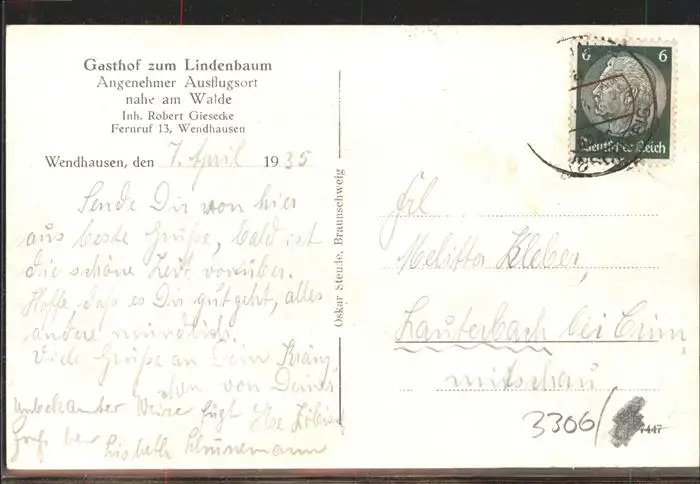 Gasthof zum Lindenbaum
Angenehmer Ausflugsort
nahe am Walde
Inh. Robert Giesecke
Fernruf 13, Wendhausen
Wendhausen, den 7. April 1935
Sende Dir von hier
aus beste Grüße, bald ist
die schöne Zeit vorüber.
Hoffe, daß es Dir gut geht, alles
andere mündlich.
Viele Grüße an Dein Kränz
chen von Deiner
Unbekannter Weise fügt Ilse
Gruß bei Lisbeth
Oskar Steude, Braunschweig
6 6
Deutsches Reich
Frl
Melitta Kleber,
Lauterbach bei Crim
mitschau
3306/
7447